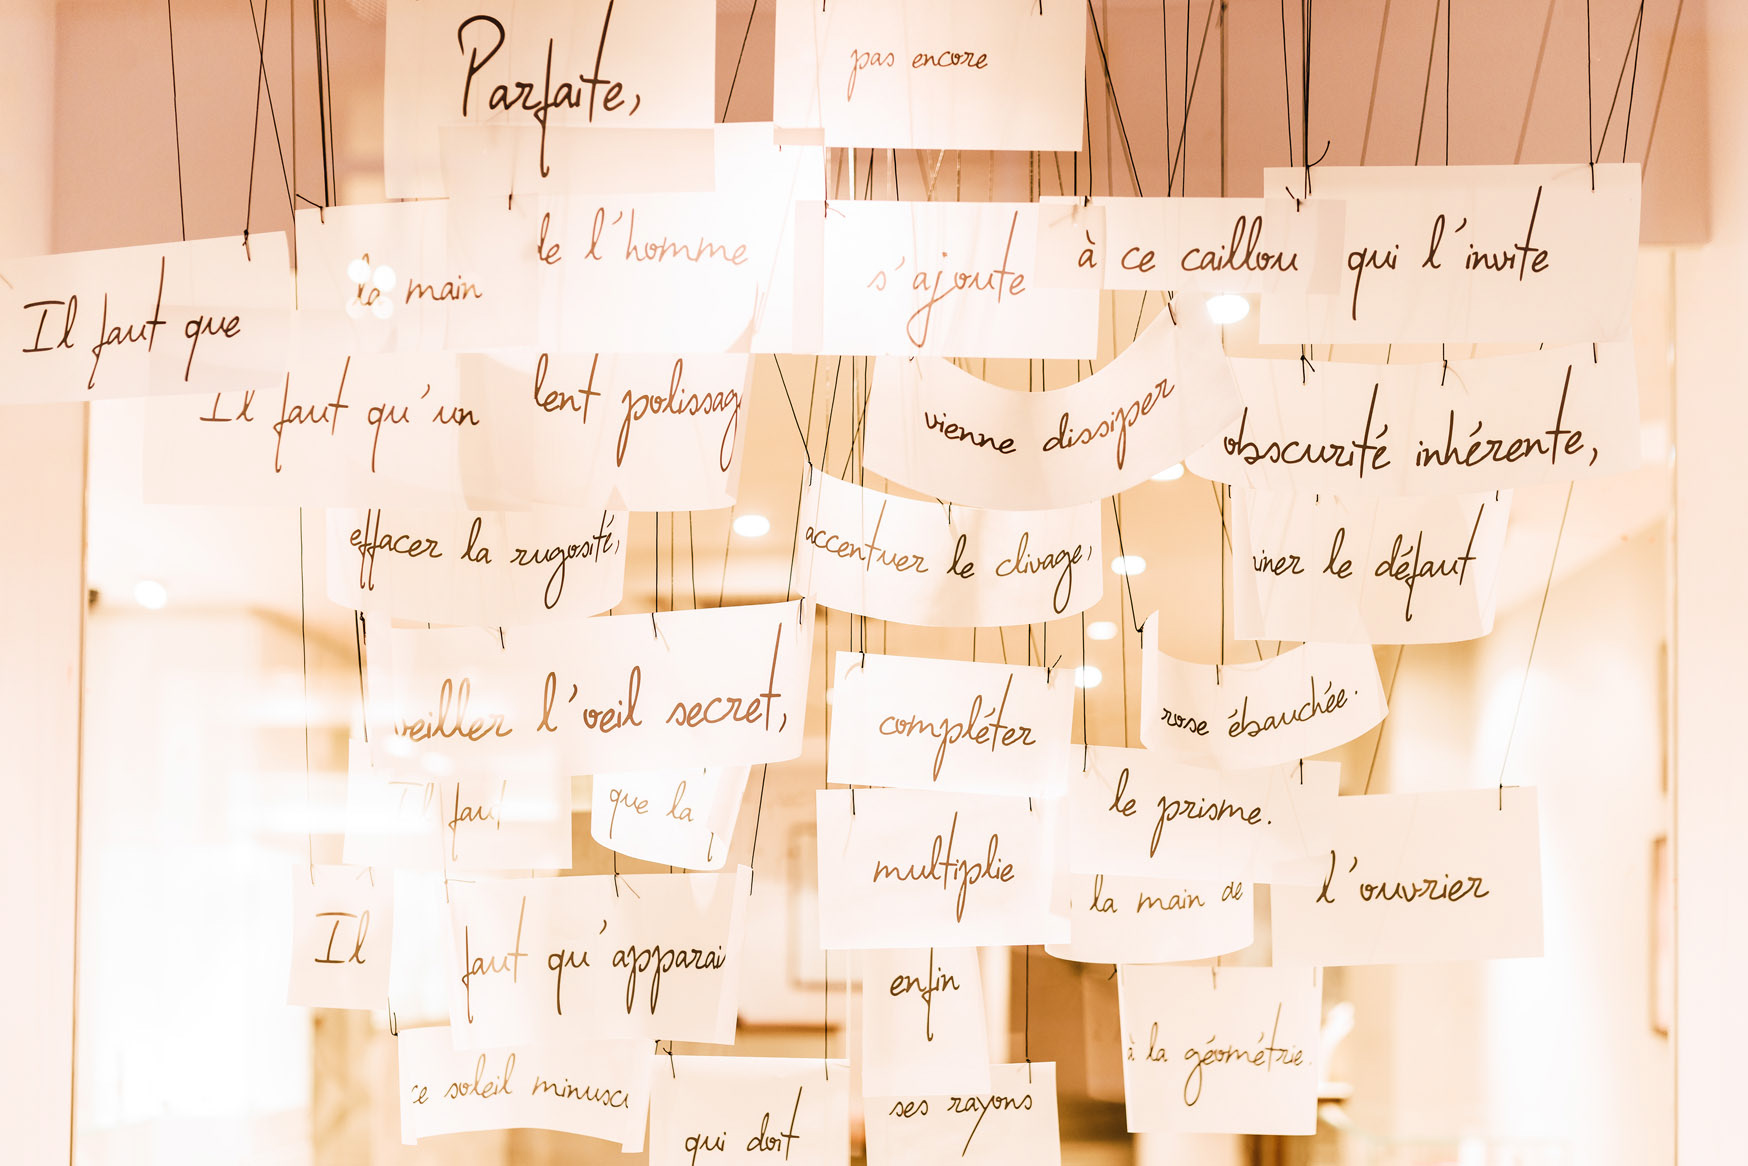 Parfaite, pas encore
Il faut que la main de l'homme s'ajoute à ce caillou qui l'invite
Il faut qu'un lent polissag vienne dissiper obscurité inhérente,
effacer la rugosité, accentuer le clivage, le défaut
veiller l'oeil secret, compléter rose ébauchée.
Il que la multiplie le prisme.
la main de l'ouvrier
Il faut qu'apparai enfin à la géométrie.
ce soleil minuscu qui doit ses rayons